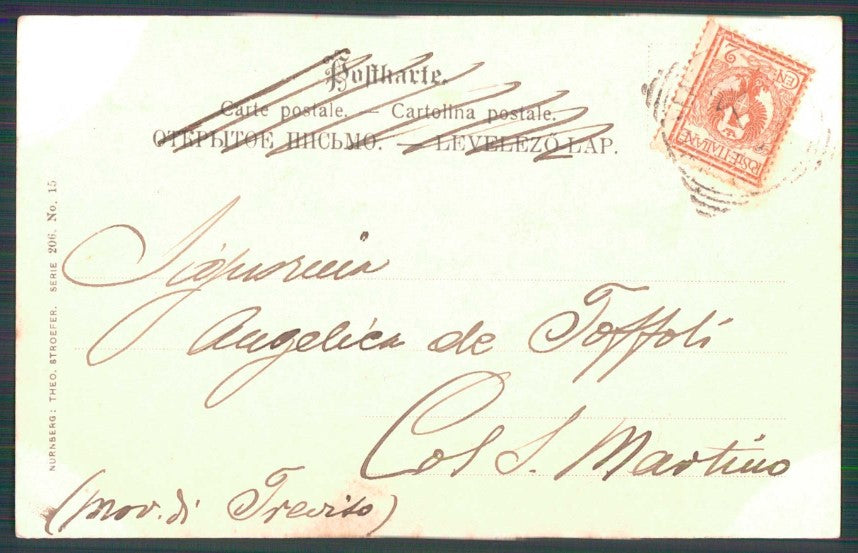 Postkarte.
Carte postale. — Cartolina postale.
ОТКРЫТОЕ ПИСЬМО. — LEVELEZŐ-LAP.
POSTE ITALIANE
CEN. 2
NURNBERG: THEO. STROEFER. SERIE 206. No. 15
Signorina
Angelica de Toffoli
Col S. Martino
(Prov. di Treviso)